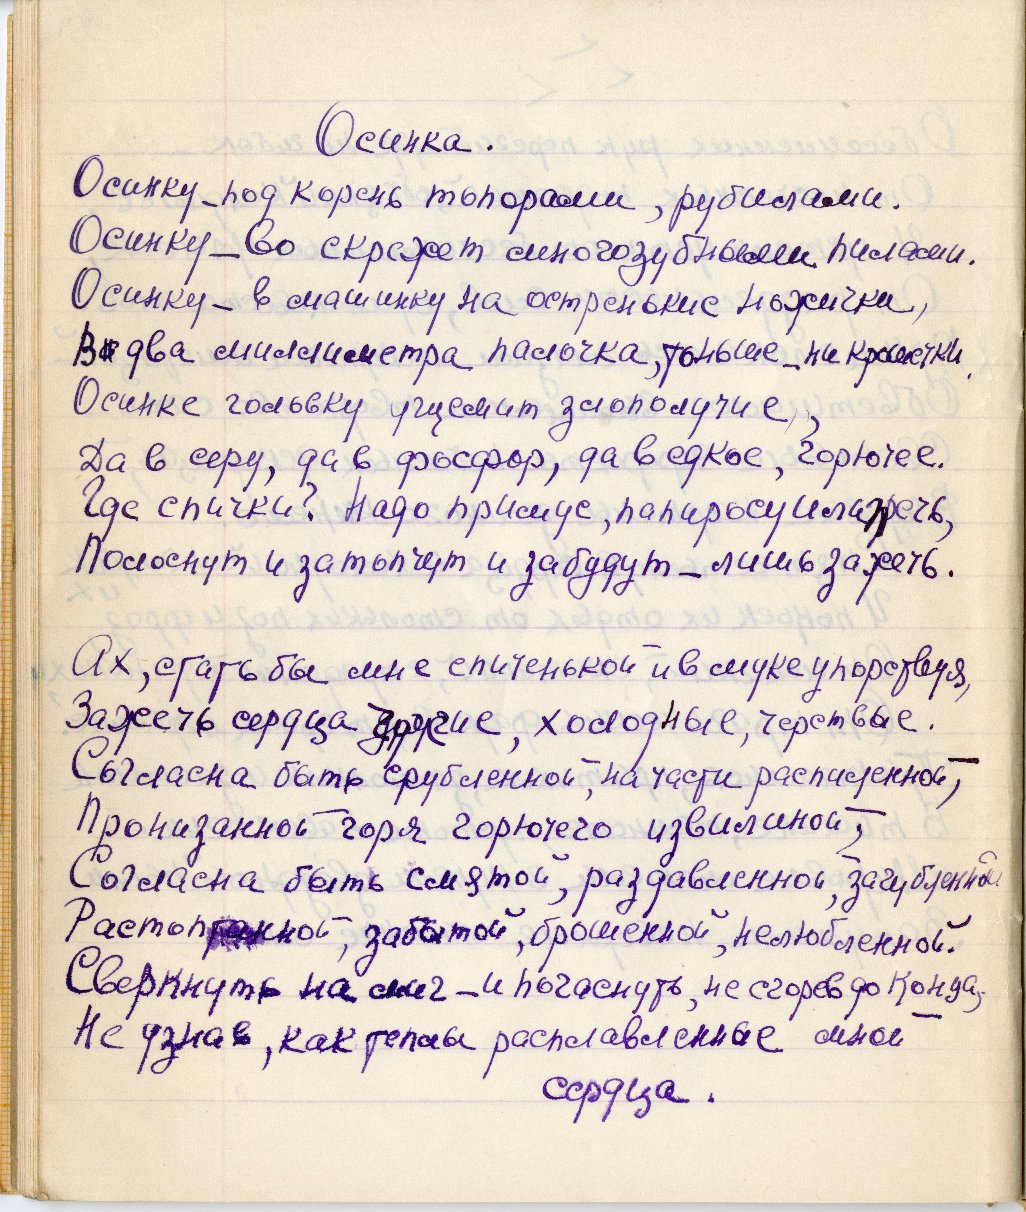 Осинка.
Осинку – под корень топорами, рубилами.
Осинку – во скрежет многозубными пилами.
Осинку – в машинку на остренькие ножички,
В два миллиметра палочка, тоньше – ни крошечки.
Осинке головку ущемит злополучие,
Да в серу, да в фосфор, да в едкое, горючее.
Где спички? Надо примус, папиросу или печь,
Полоснут и затопчут и забудут – лишь зажечь.
Ах, стать бы мне спиченькой и в муке упорствуя,
Зажечь сердца другие, холодные, черствые.
Согласна быть срубленной, на части распиленной,
Пронизанной горя горючего извилиной,
Согласна быть смятой, раздавленной, загубленной
Растоптанной, забытой, брошенной, нелюбленной.
Сверкнуть на миг – и погаснуть, не сгорев до конца,
Не узнав, как теплы расплавленные мной
сердца.